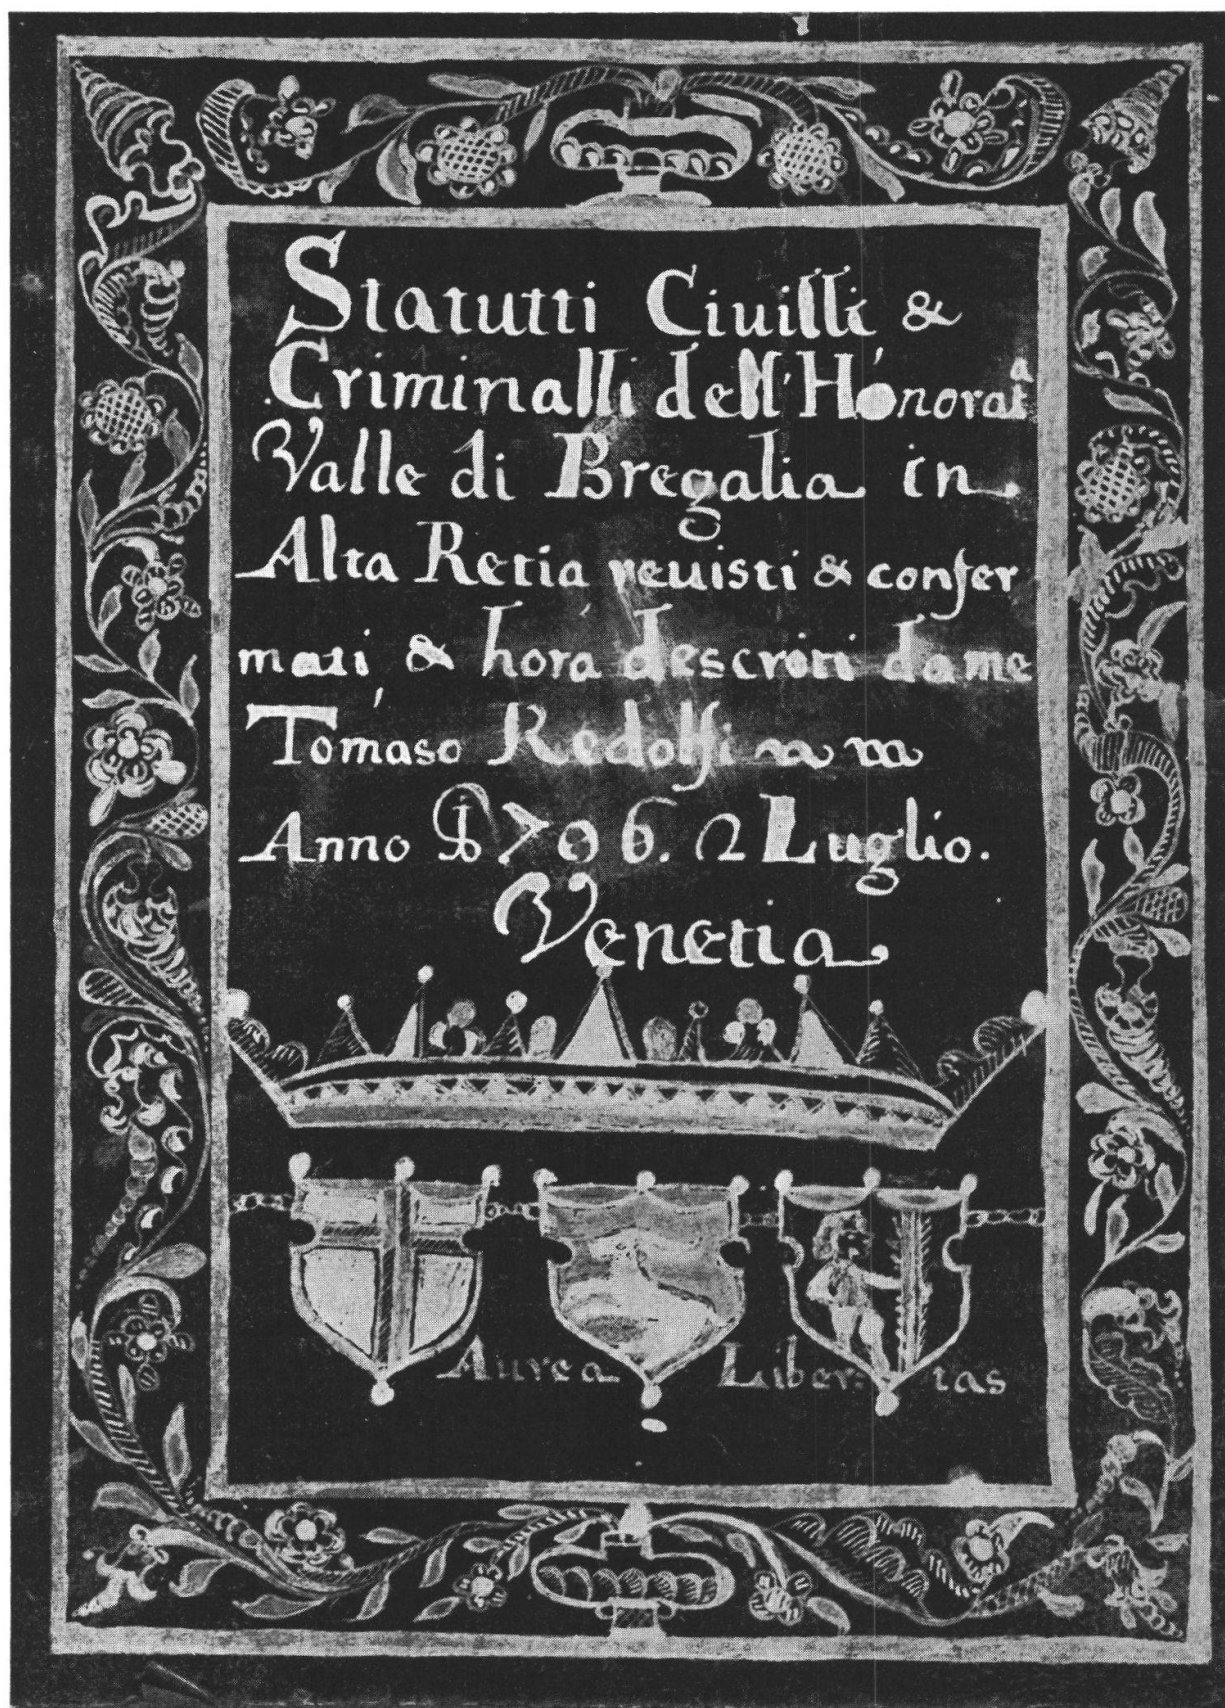 Statutti Ciuilli &
Criminalli dell' Honorat^a
Valle di Bregalia in
Alta Retia reuisti & confer
mati & hora descriti da me
Tomaso Redolfi
Anno 1706. 2 Luglio.
Venetia
Aurea Libertas